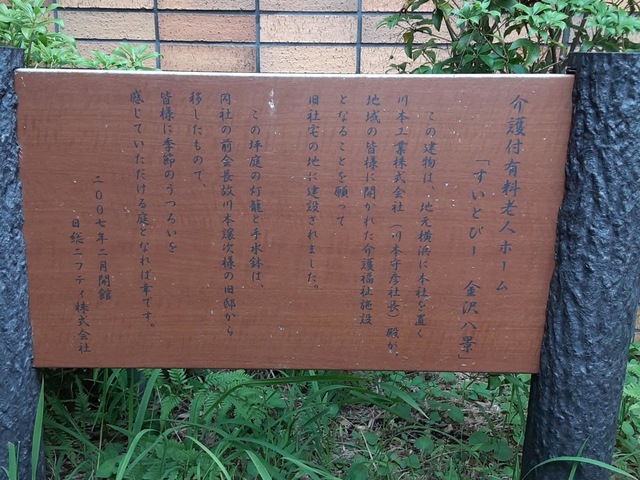 介護付有料老人ホーム
「すいとぴー 金沢八景」
この建物は、地元横浜に本社を置く
川本工業株式会社（川本守彦社長）殿が、
地域の皆様に開かれた介護福祉施設
となることを願って
旧社宅の地に建設されました。
この坪庭の灯籠と手水鉢は、
同社の前会長故川本譲次様の旧邸から
移したもので、
皆様に季節のうつろいを
感じていただける庭となれば幸です。
二〇〇七年二月開館
日総ニフティ株式会社